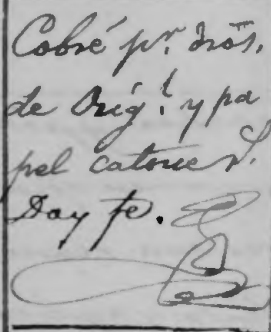 Cobré pr. drõs.
de Orig.l y pa
pel catorce r.s
Doy fe.